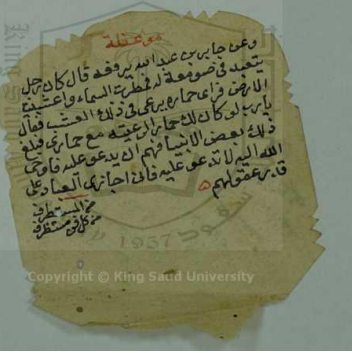 موعظة
وعن جابر بن عبد الله يرفعه قال كان رجل
يتعبد في صومعة له فمطرت السماء واعشبت
الارض فراى حماره يرعى في ذلك العشب فقال
يارب لو كان لك حمار لرعيته مع حماري فبلغ
ذلك بعض الانبيا فهم ان يدعو عليه فاوحى
الله اليه لا تدعو عليه فاني اجازي العباد على
قدر عقولهم ه
من المستطرف
من كل فن مستظرف
1957
Copyright © King Saud University